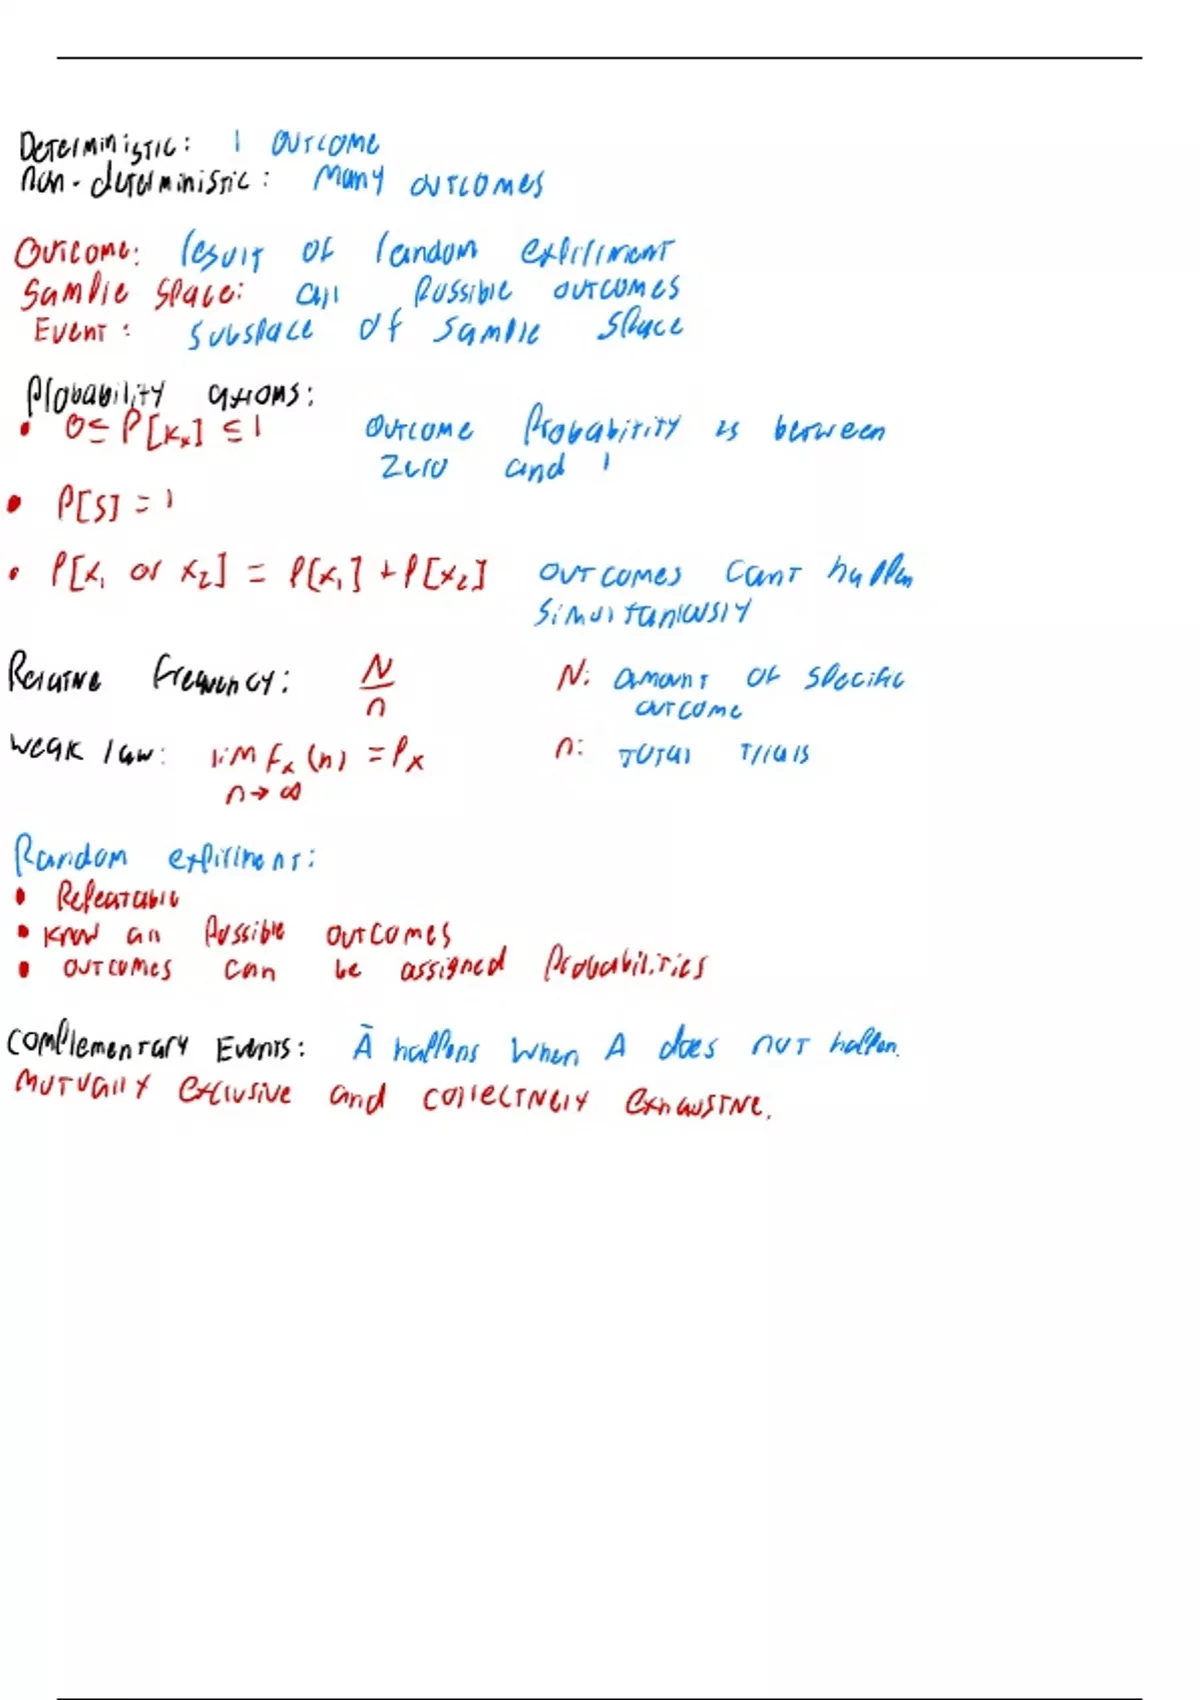 Deterministic: 1 outcome
non-deterministic: Many outcomes
Outcome: result of random experiment
Sample space: all possible outcomes
Event: subspace of sample space
Probability axioms:
• 0 ≤ P[Xₓ] ≤ 1 outcome probability is between
zero and 1
• P[S] = 1
• P[x₁ or x₂] = P[x₁] + P[x₂] outcomes cant happen
simultaniously
Relative frequency: N/n N: amount of specific
outcome
weak law: lim fₓ(n) = Pₓ n: total trials
n→∞
Random experiment:
• Repeatable
• know all possible outcomes
• outcomes can be assigned probabilities
Complementary Events: Ā happens when A does not happen.
Mutually exclusive and collectively exhaustive.